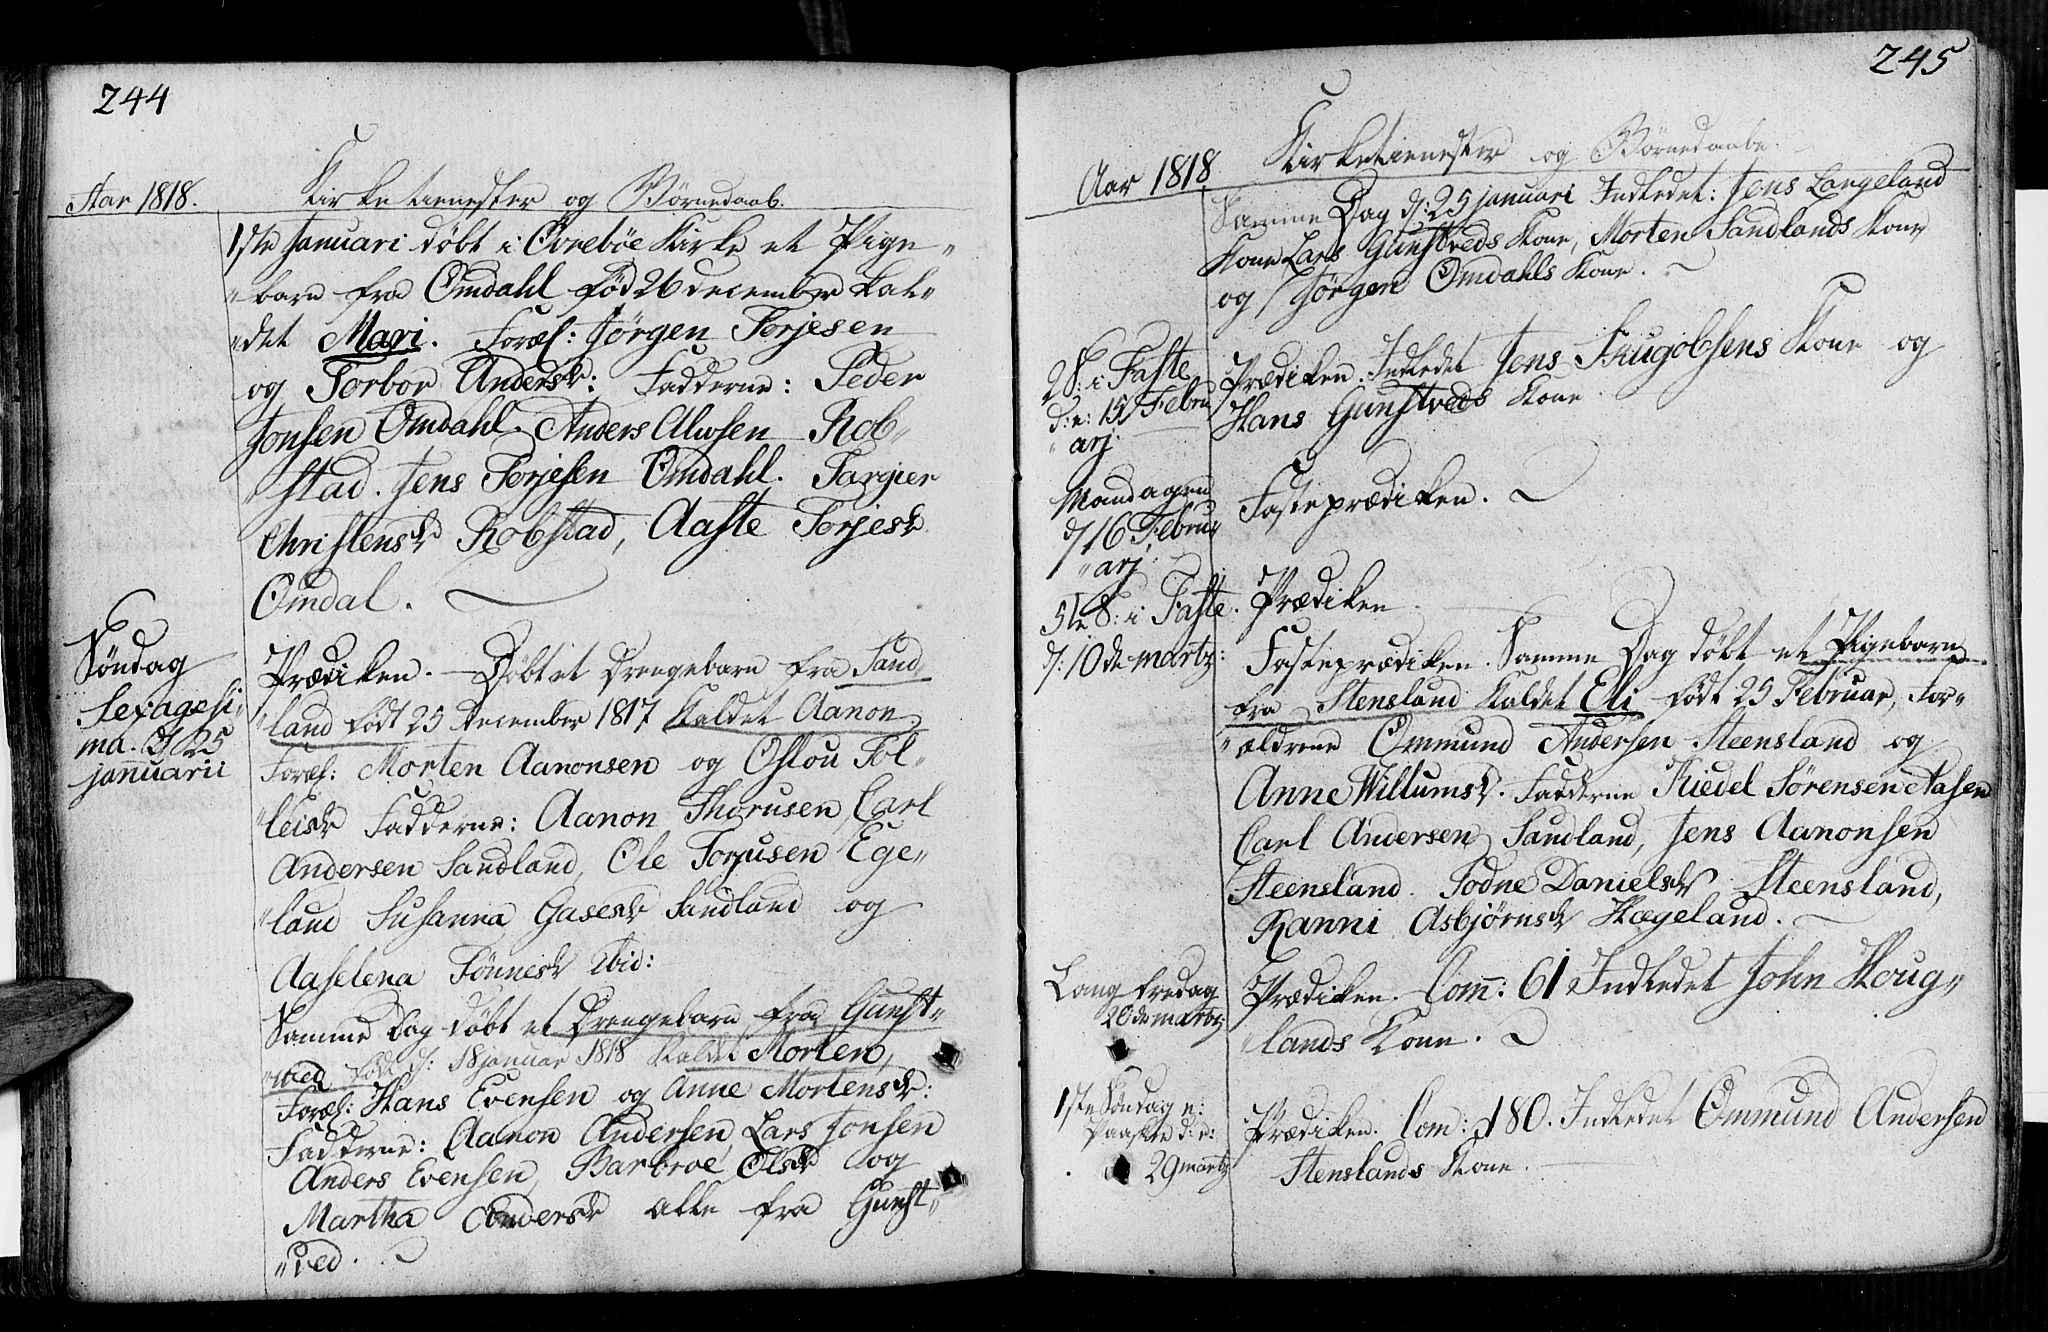 244
Aar 1818. Kirketienester og Börnedaab.
1ste Januari döbt i Övreböe Kirke et Pige-
"barn fra Omdahl fød 26 december kal-
"det Mari. Foræl: Jörgen Torjesen
og Torbor Andersdr: Fadderne: Peder
Jonsen Omdahl. Anders Alwsen Rob-
"stad. Jens Torjesen Omdahl. Targier
Christensdr Robstad, Aaste Torjesdr
Omdal.
Söndag
Sexagesi-
ma. d 25
januarii
Prædiken. - Döbt et Drengebarn fra Sand
"land födt 25 december 1817 kaldet Aanon
Foræl: Morten Aanonsen og Oslou Tol-
"leisdr Fadderne: Aanon Thorusen, Carl
Andersen Sandland, Ole Torjusen Ege-
"land Susanna Gasesdr Sandland og
Aaselena Tönnesdr Ibid:
Samme Dag döbt et Drengebarn fra Gunst-
"ved föd d: 18 januar 1818 kaldet Morten,
Foræl: Hans Evensen og Anne Mortensdr:
Fadderne: Aanon Andersen, Lars Jonsen
Anders Evensen, Barbroe Olsdr og
Martha Andersdr alle fra Gunst-
"ved.
245
Aar 1818 Kirketienester og Börnedaabe.
Samme Dag d: 25 januari Indledet: Jens Langeland
Kone Lars Gunstveds Kone, Morten Sandlands Kone
og Jörgen Omdahls Kone.
2 S: i Faste
d: e: 15 Febru
"arj:
Prædiken. Indledet Jens Skugobsens Kone og
Hans Gunstveds Kone.
Mandagen
d/16 Febru-
"arj:
Fasteprædiken.
5te S: i Faste. Prædiken.
d: 10de martz:
Fasteprædiken. Samme Dag döbt et Pigebarn
fra Stensland kaldet Eli födt 25 Februar, For-
"ældrene Ommund Andersen Steensland og
Anne Willumsdr. Fadderne Kiedel Sörensen Aasen
Carl Andersen Sandland, Jens Aanonsen
Steensland. Todne Danielsdr Steensland,
Ranni Asbjørnsdr Hægeland.
Lang fredag
20de martz
Prædiken. Com: 61 Indledet John Houg-
"lands Kone.
1ste Söndag e:
Paaske d: e:
29 martz
Prædiken. Com: 180. Indledet Ommund Andersen
Stenslands Kone.